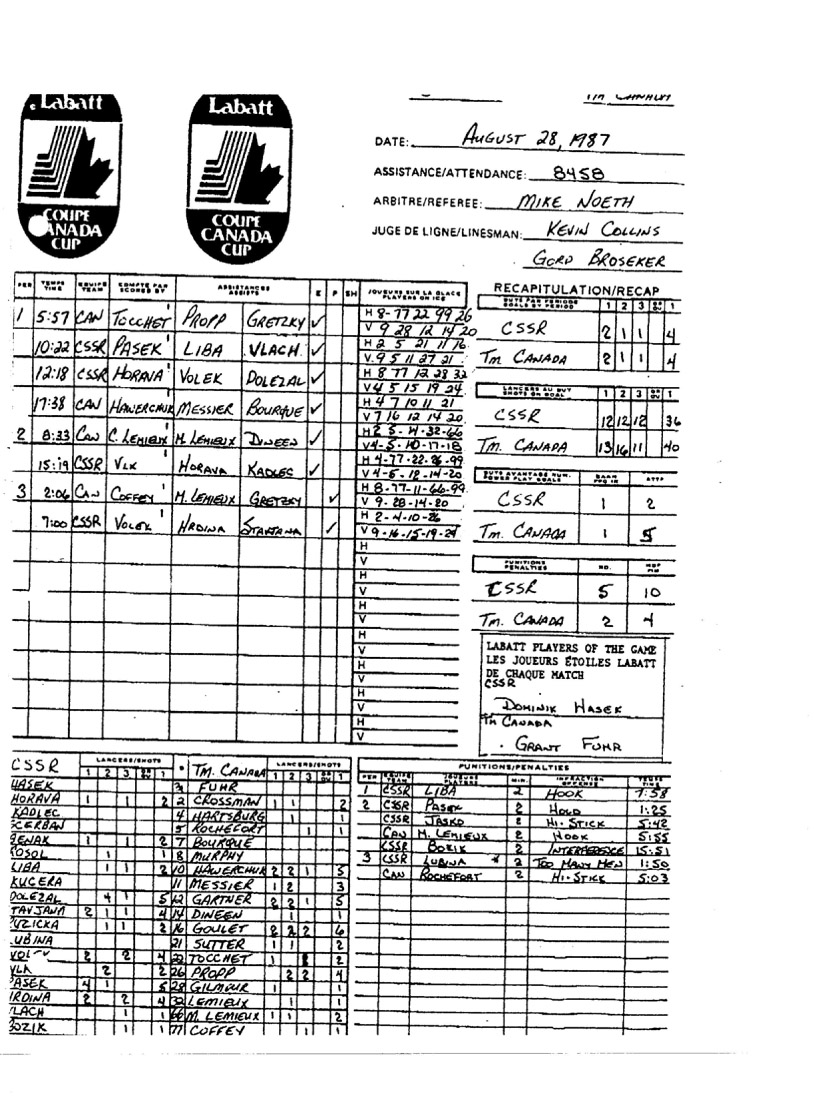 Labatt Labatt
COUPE CANADA CUP COUPE CANADA CUP
TM CANADA
DATE: AUGUST 28, 1987
ASSISTANCE/ATTENDANCE: 8458
ARBITRE/REFEREE: MIKE NOETH
JUGE DE LIGNE/LINESMAN: KEVIN COLLINS
GORD BROSEKER
PER TEMPS TIME EQUIPE TEAM COMPTE PAR SCORED BY ASSISTANCES ASSISTS E P SH JOUEURS SUR LA GLACE PLAYERS ON ICE
1 5:57 CAN TOCCHET 1 PROPP GRETZKY ✓ H 8-77 22 99 26
V 9 28 12 14 20
10:22 CSSR PASEK 1 LIBA VLACH ✓ H 2 5 21 11 16
V 9 5 11 27 21
12:18 CSSR HORAVA 1 VOLEK DOLEZAL ✓ H 8 77 12 28 32
V 4 5 15 19 24
17:38 CAN HAWERCHUK MESSIER BOURQUE ✓ H 4 7 10 11 21
V 7 16 12 14 20
2 8:33 CAN C. LEMIEUX M. LEMIEUX DINEEN ✓ H 2 5-14-32-66
V 4-5-10-17-18
15:19 CSSR VLK HORAVA KADLEC ✓ H 4-77-22-26-99
V 4-6-12-14-20
3 2:06 CAN COFFEY 1 M. LEMIEUX GRETZKY ✓ H 8-77-11-66-99
V 9-28-14-20
7:00 CSSR VOLEK 1 HRDINA STAVJANA ✓ H 2-4-10-26
V 9-16-15-19-24
H
V
H
V
H
V
H
V
H
V
H
V
H
V
RECAPITULATION/RECAP
BUTS PAR PERIODE GOALS BY PERIOD 1 2 3 T
CSSR 2 1 1 4
TM CANADA 2 1 1 4
LANCERS AU BUT SHOTS ON GOAL 1 2 3 T
CSSR 12 12 12 36
TM. CANADA 13 16 11 40
BUTS AVANTAGE NUM. POWER PLAY GOALS
CSSR 1 2
TM. CANADA 1 5
PUNITIONS PENALTIES NO. MIN
CSSR 5 10
TM. CANADA 2 4
LABATT PLAYERS OF THE GAME
LES JOUEURS ÉTOILES LABATT
DE CHAQUE MATCH
CSSR
DOMINIK HASEK
TM CANADA
GRANT FUHR
CSSR LANCERS/SHOTS 1 2 3 T
HASEK
HORAVA 1 1 2
KADLEC
SCERBAN
BENAK 1 1 2
ROSOL 1 1
LIBA 1 1 2
KUCERA
DOLEZAL 4 1 5
STAVJANA 2 1 1 4
RUZICKA 1 1 2
LUBINA
VOLEK 2 2 4
VLK 2 2
PASEK 4 1 5
HRDINA 2 2 4
VLACH 1 1
BOZIK 1 1
TM. CANADA LANCERS/SHOTS 1 2 3 T
FUHR
2 CROSSMAN 1 1 2
4 HARTSBURG 1 1
5 ROCHEFORT 1 1
7 BOURQUE
8 MURPHY
10 HAWERCHUK 2 2 1 5
11 MESSIER 1 2 3
12 GARTNER 2 2 1 5
14 DINEEN 1 1
16 GOULET 2 2 2 6
21 SUTTER 1 1 2
22 TOCCHET 1 2
26 PROPP 2 2 4
28 GILMOUR 1 1
32 LEMIEUX 1 1
66 M. LEMIEUX 1 1 2
77 COFFEY 1 1
PUNITIONS/PENALTIES
PER EQUIPE TEAM JOUEURS PLAYERS MIN. INFRACTION OFFENSE TEMPS TIME
1 CSSR LIBA 2 HOOK 7:58
2 CSSR PASEK 2 HOLD 1:25
CSSR JASKO 2 HI-STICK 5:42
CAN M. LEMIEUX 2 HOOK 5:55
CSSR BOZIK 2 INTERFERENCE 15:51
3 CSSR LUBINA * 2 TOO MANY MEN 1:50
CAN ROCHEFORT 2 HI-STICK 5:03